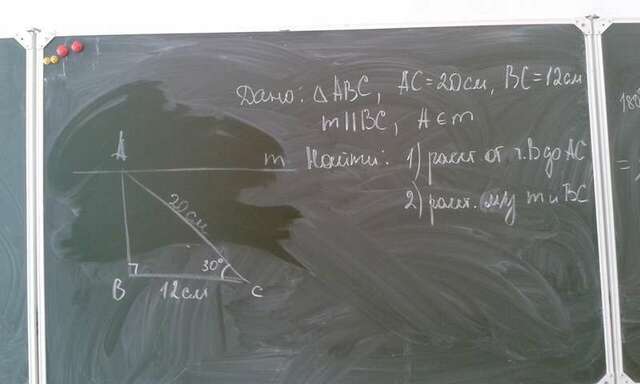 Дано: △ABC, AC=20см, BC=12см
m||BC, A∈m
Найти: 1) расст от т.B до AC
2) расст. м/у m и BC
A
m
20см
30°
B
12см
C
180°
=